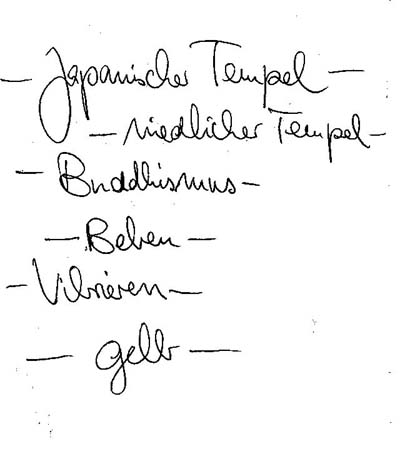 – Japanischer Tempel –
– niedlicher Tempel –
– Buddhismus –
– Beben –
– Vibrieren –
– gelb –